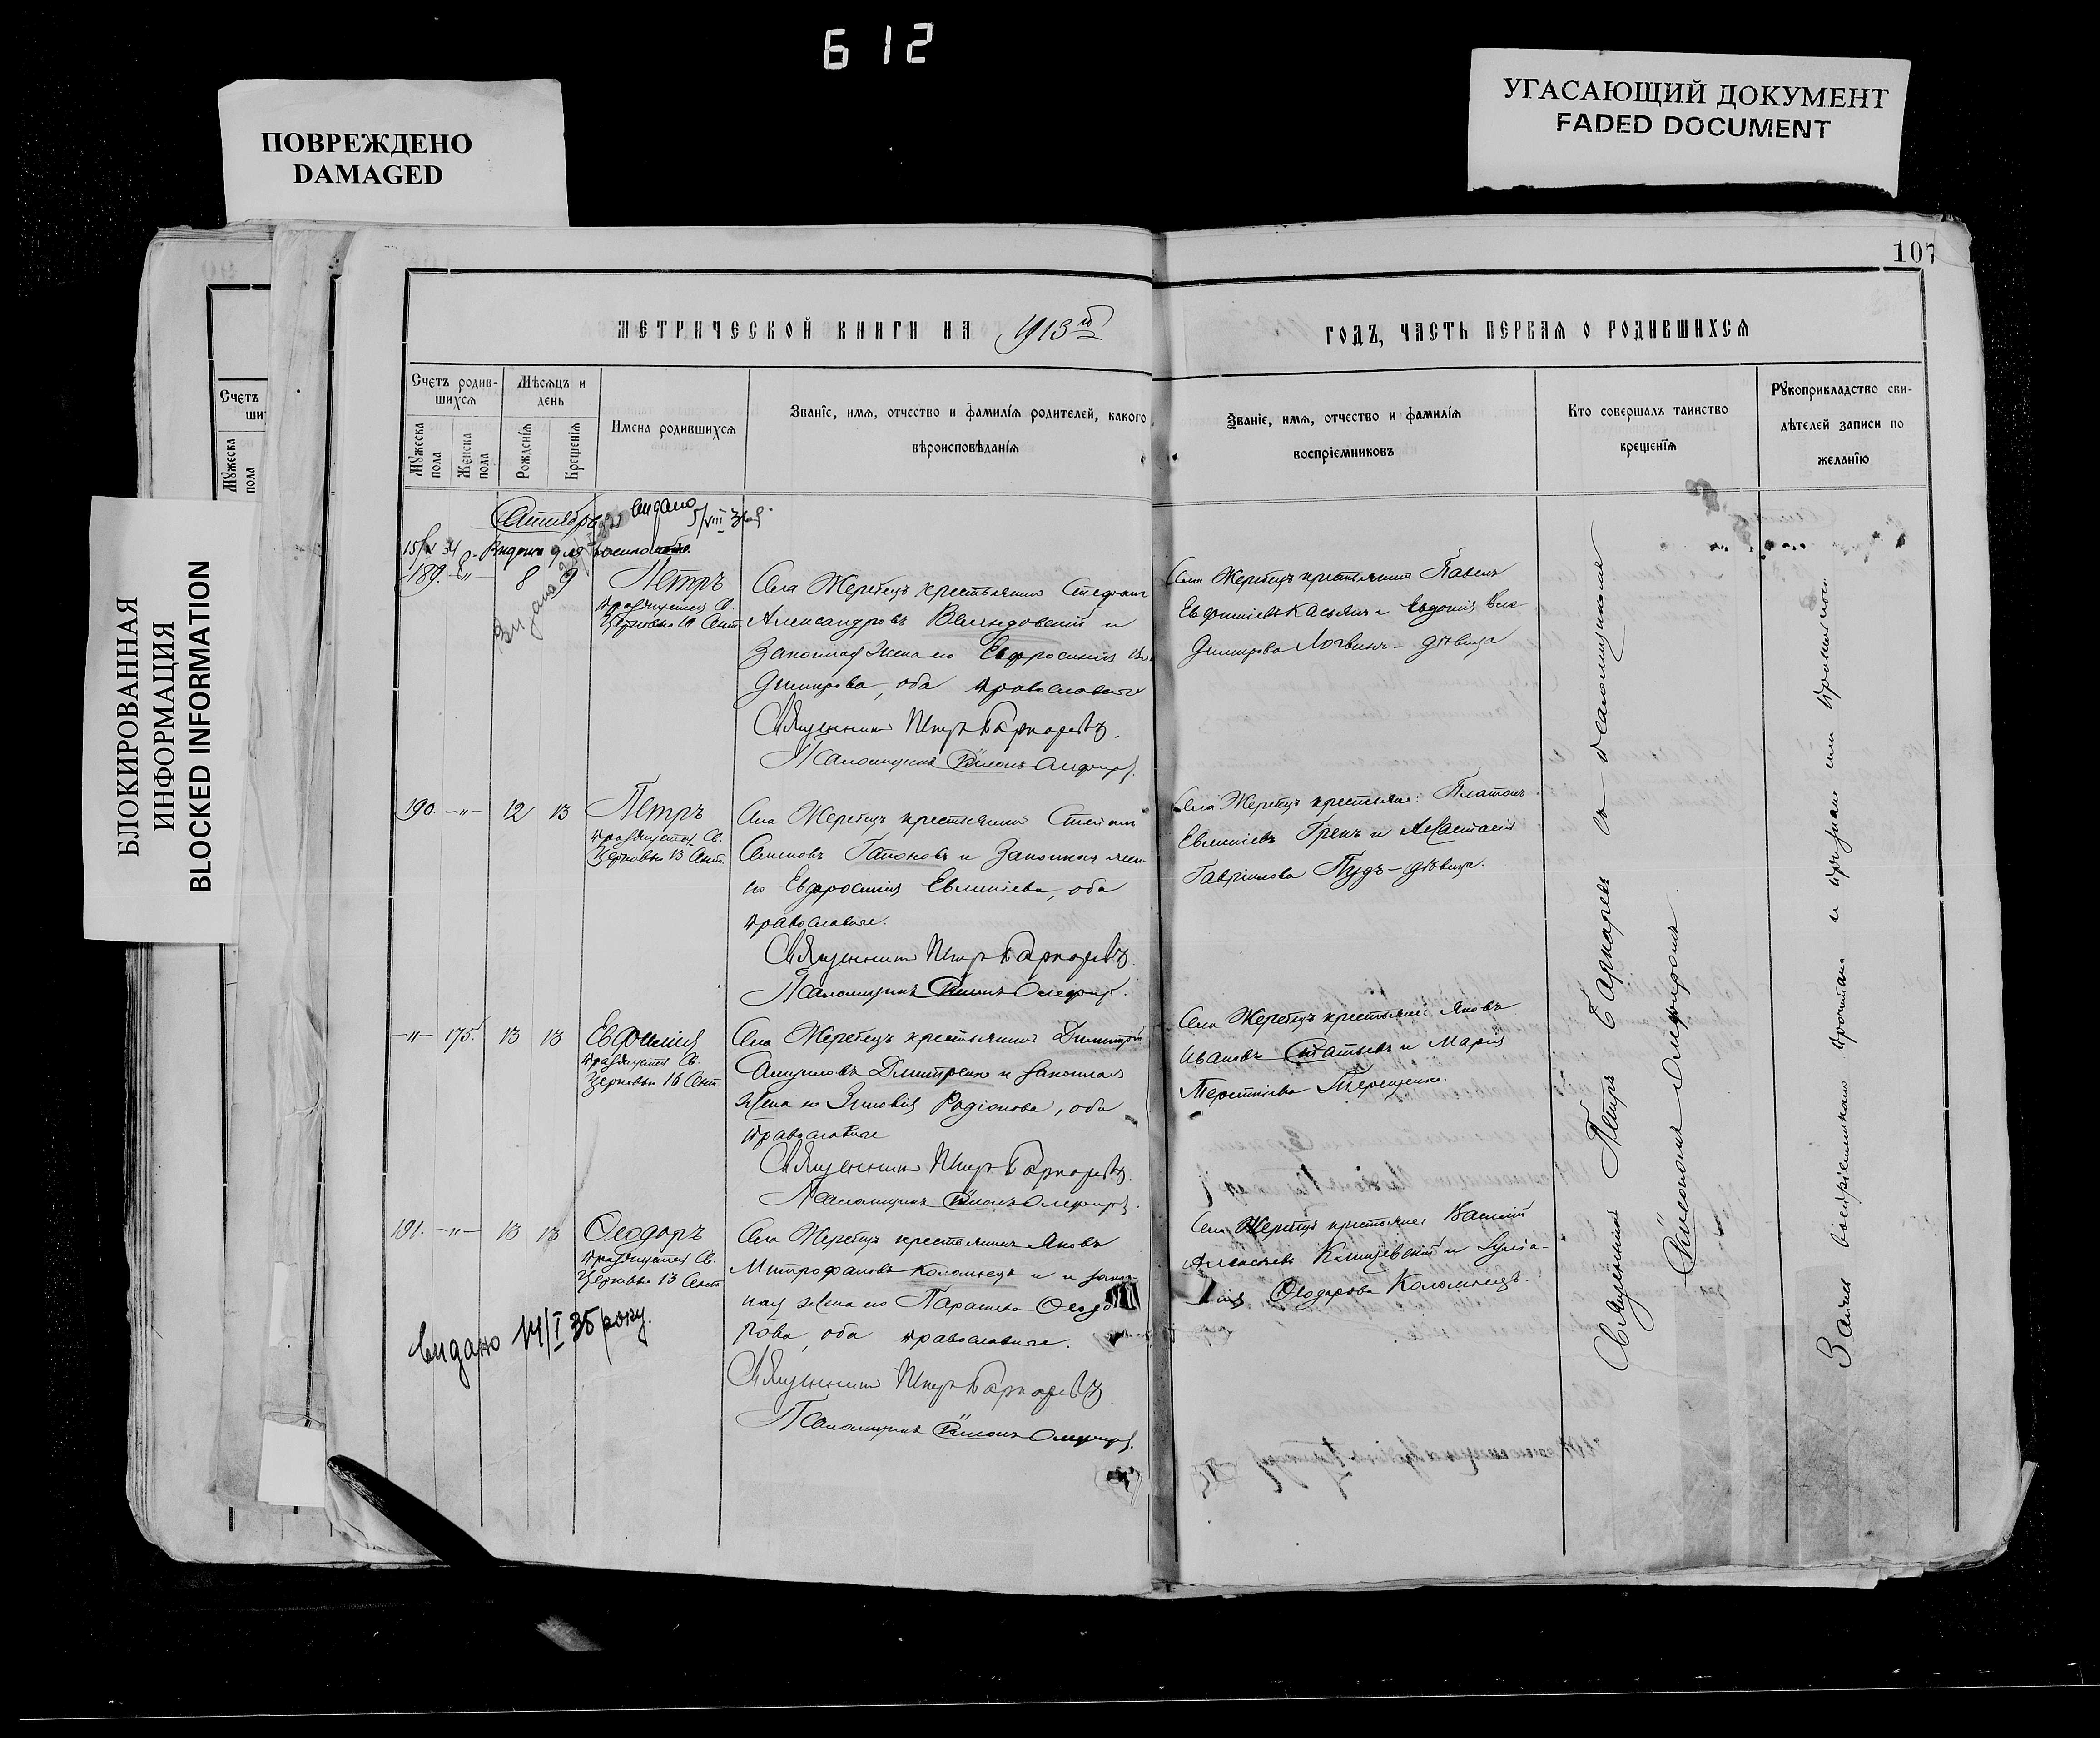 612
ПОВРЕЖДЕНО
DAMAGED
УГАСАЮЩИЙ ДОКУМЕНТ
FADED DOCUMENT
БЛОКИРОВАННАЯ
ИНФОРМАЦИЯ
BLOCKED INFORMATION
107
МЕТРИЧЕСКОЙ КНИГИ НА 1913 й
ГОДЪ, ЧАСТЬ ПЕРВАЯ О РОДИВШИХСЯ
Счетъ родив-
шихся
Мужеска
пола
Женска
пола
Мѣсяцъ и
день
Рожденія
Крещенія
Имена родившихся
Званіе, имя, отчество и фамилія родителей, какого
вѣроисповѣданія
Званіе, имя, отчество и фамилія
воспріемниковъ
Кто совершалъ таинство
крещенія
Рукоприкладство сви-
дѣтелей записи по
желанію
Счетъ
ши
Мужеска
пола
Сентябрь
видано
189. -"- 8 9 Петръ
празднуется Св.
Церковью 10 Сент.
Села Жеребецъ крестьянинъ Стефанъ
Александровъ и
Законная жена его Евфросинія Вла
димирова, оба православные
Священникъ Петръ Багнаревъ.
Псаломщикъ Симонъ
Села Жеребецъ крестьянинъ Павелъ
Евфиміевъ Касьянъ и Евдокія Вла-
димирова Логвинъ - дѣвица
190. -"- 12 13 Петръ
празднуется Св.
Церковью 13 Сент.
Села Жеребецъ крестьянинъ Стефанъ
Семеновъ Гапоновъ и Законная жена
его Евфросинія Евменіева, оба
православные.
Священникъ Петръ Багнаревъ.
Псаломщикъ Симонъ
Села Жеребецъ крестьяне: Платонъ
Евменіевъ Грекъ и Анастасія
Гавріилова Пудъ - дѣвица.
-"- 175. 13 13 Евфимія
празднуется Св.
Церковью 16 Сент.
Села Жеребецъ крестьянинъ Димитрій
Дмитренко и законная
жена его Зиновія Родіонова, оба
православные
Священникъ Петръ Багнаревъ.
Псаломщикъ Симонъ
Села Жеребецъ крестьяне: Яковъ
Ивановъ и Марія
Терентіева Терещенко.
191. -"- 13 13 Ѳеодоръ
празднуется Св.
Церковью 13 Сент.
Села Жеребецъ крестьянинъ Яковъ
Митрофановъ Коломіецъ и и закон-
ная жена его Параскева Ѳеодо
рова, оба православные.
Священникъ Петръ Багнаревъ
Псаломщикъ Симонъ
Села Жеребецъ крестьяне: Василій
Алексѣевъ и
Ѳеодорова Коломіецъ.
Видано 14/I 35 року.
Священникъ Петръ Багнаревъ съ псаломщикомъ
Симономъ